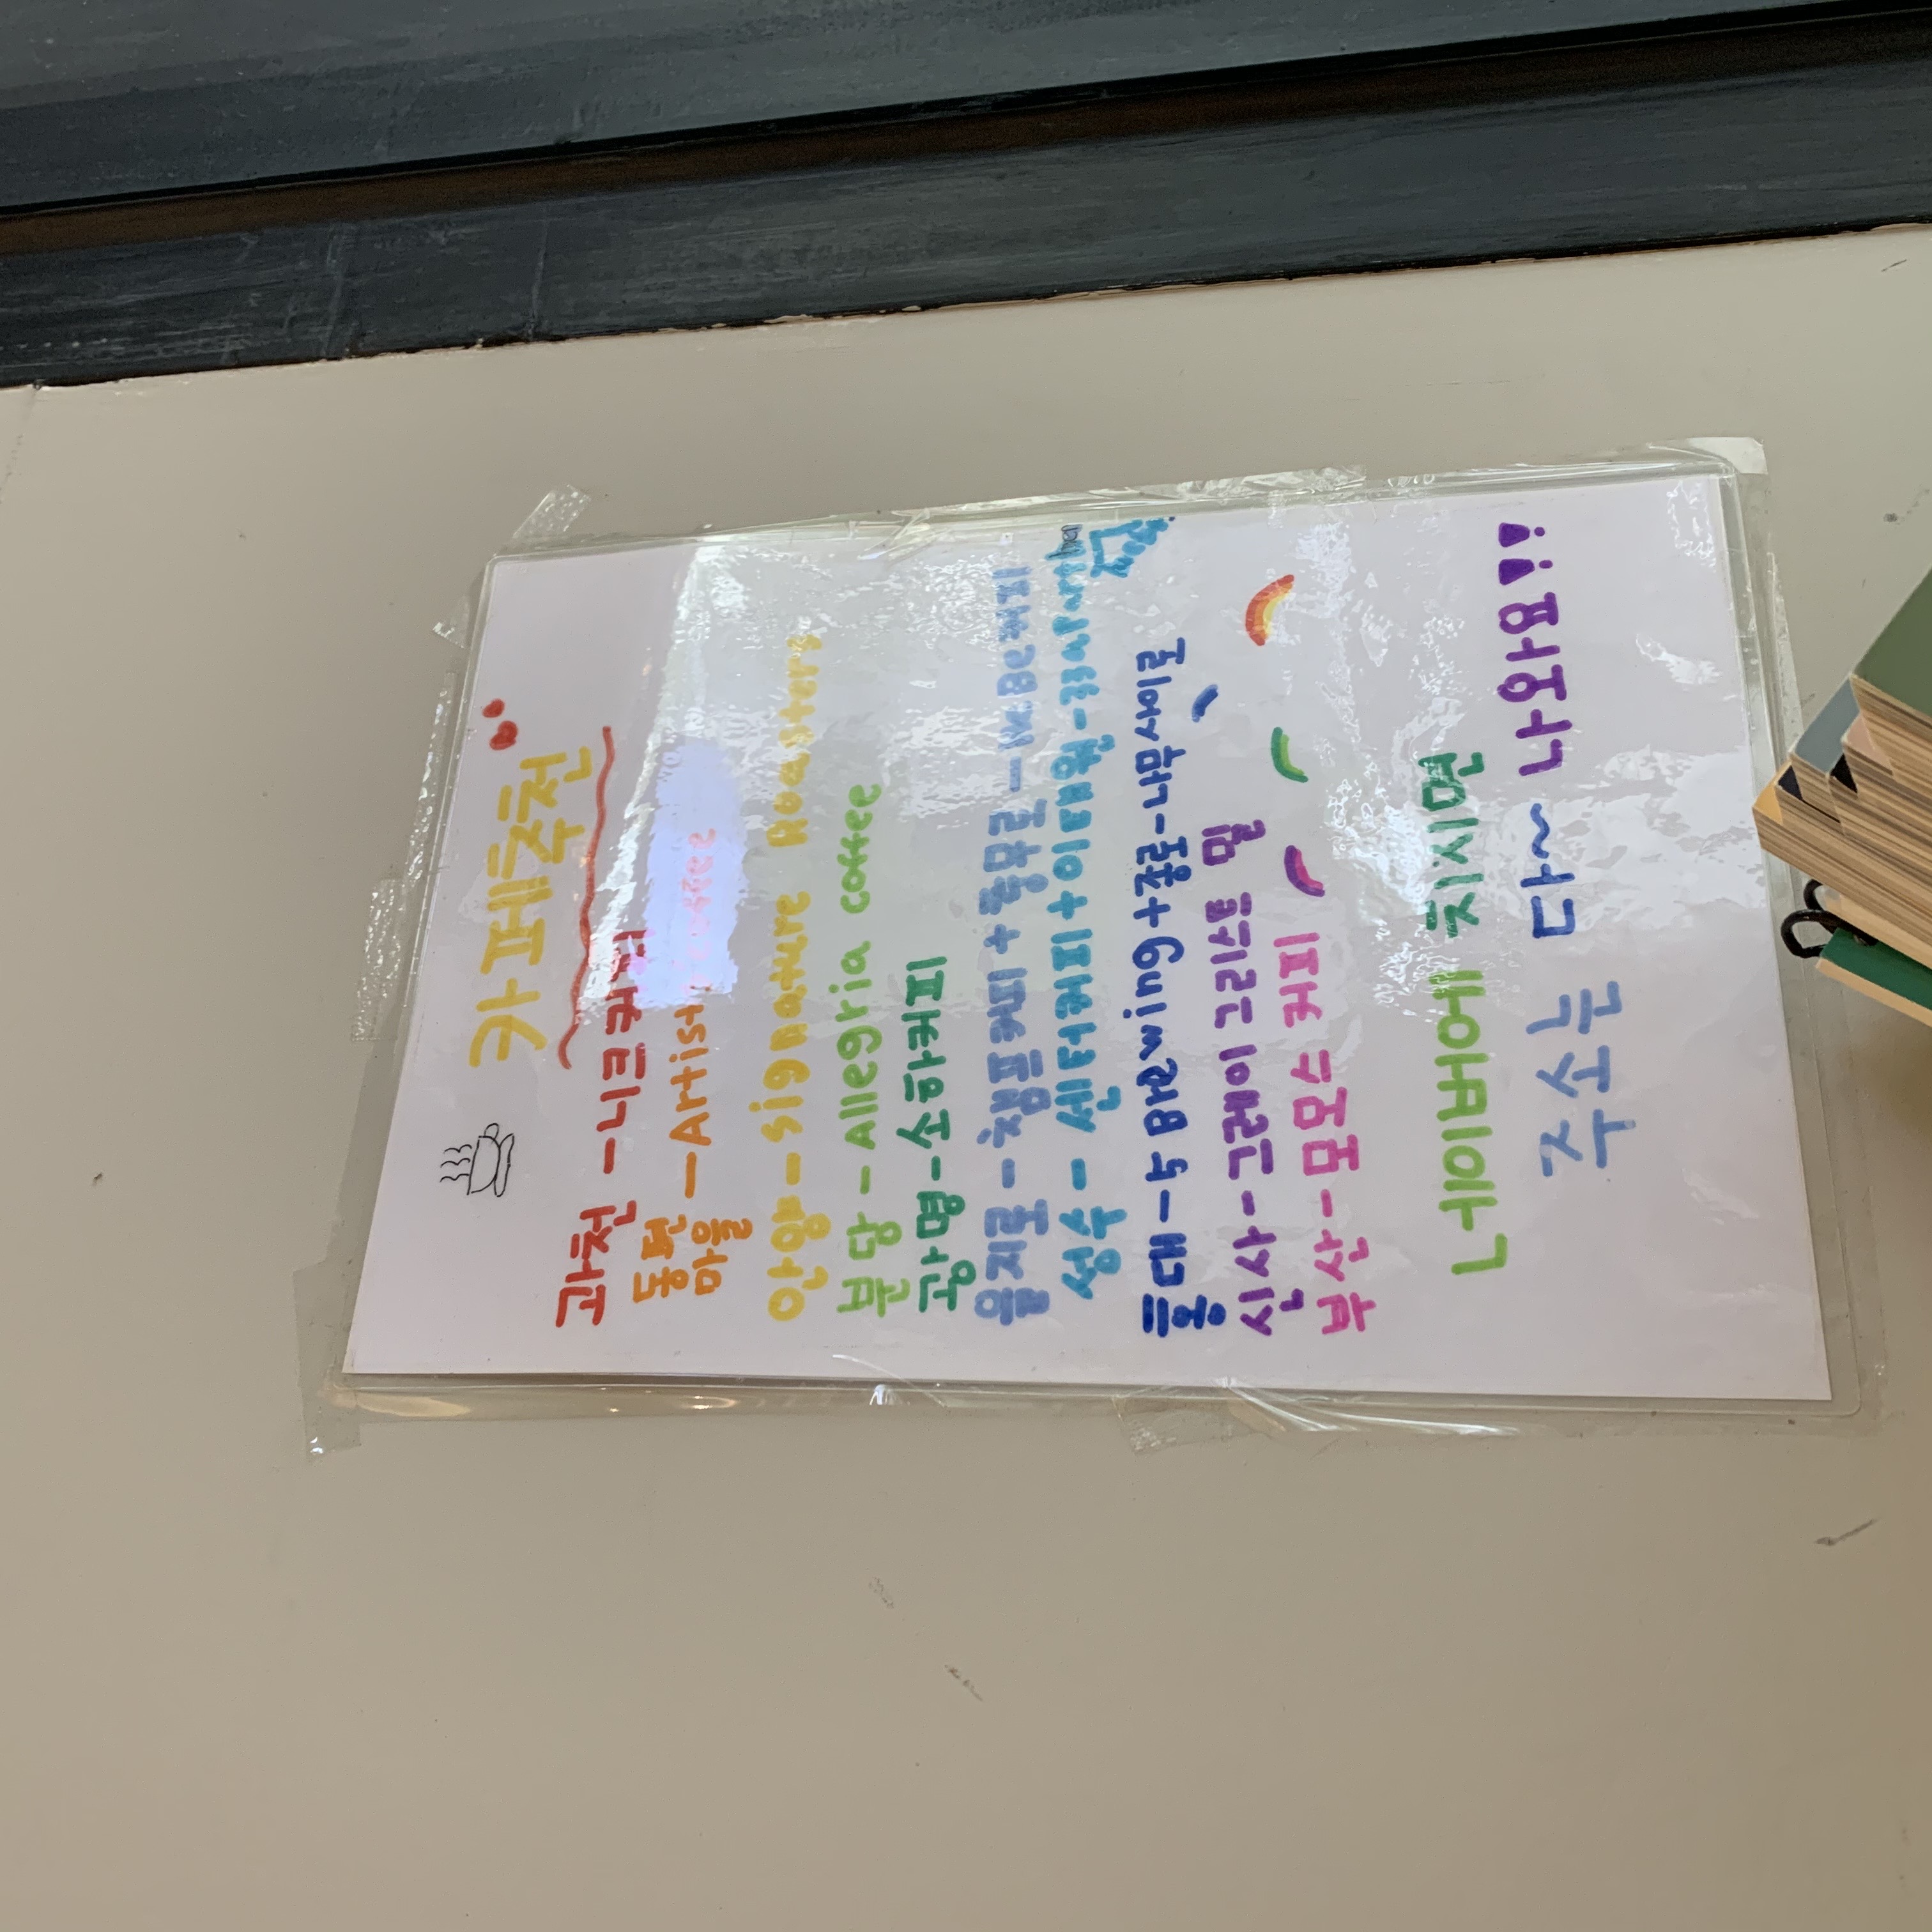 카페추천
과천 - 니크커피
동편
마을 - Artists coffee
안양 - signature Roasters
분당 - Allegria coffee
광명 - 소하커피
을지로 - 챔프커피 + 충무로 - Be커피
성수 - 센터커피 + 이태원 - 33apartment
홍대 - 5 Brewing + 종로 - 나무사이로
신사 - 그레이 그리스트 밀
부산 - 모모스 커피
네이버에 치시면
주소는 다~ 나와요!!